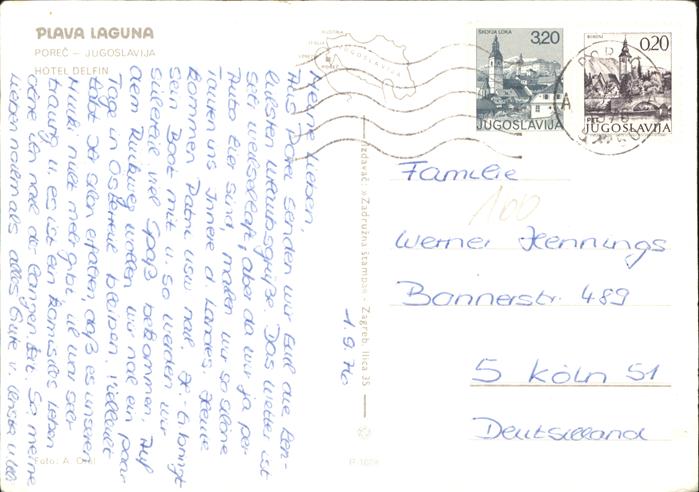 PLAVA LAGUNA
POREČ – JUGOSLAVIJA
HOTEL DELFIN
AUSTRIA
ITALIA
JUGOSLAVIJA
ŠKOFJA LOKA
3,20
JUGOSLAVIJA
BOHINJ
0,20
JUGOSLAVIJA
Meine Lieben,
Aus Poreč senden wir Euch die herz-
lichsten Urlaubsgrüße. Das Wetter ist
sehr wechselhaft, aber da wir ja per
Auto hier sind, machen wir so schöne
Touren ins Innere d. Landes. Heute
kommen Patru usw. nach. H. bringt
sein Boot mit u. so werden wir
sicherlich viel Spaß bekommen. Auf
dem Rückweg wollen wir noch ein paar
Tage in Österreich bleiben. Vielleicht
habt Ihr schon erfahren, daß es unseren
Mucki nicht mehr gibt. Ich war sehr
traurig u. es ist ein komisches Leben
ohne ihn nach der langen Zeit. So, meine
Lieben nochmals alles Gute v.
1.9.76
Izdavač: »Zadružna štampa« – Zagreb, Ilica 35
Foto: A.
Familie
100
Werner Hennings
Bonnerstr. 489
5 Köln 51
Deutschland